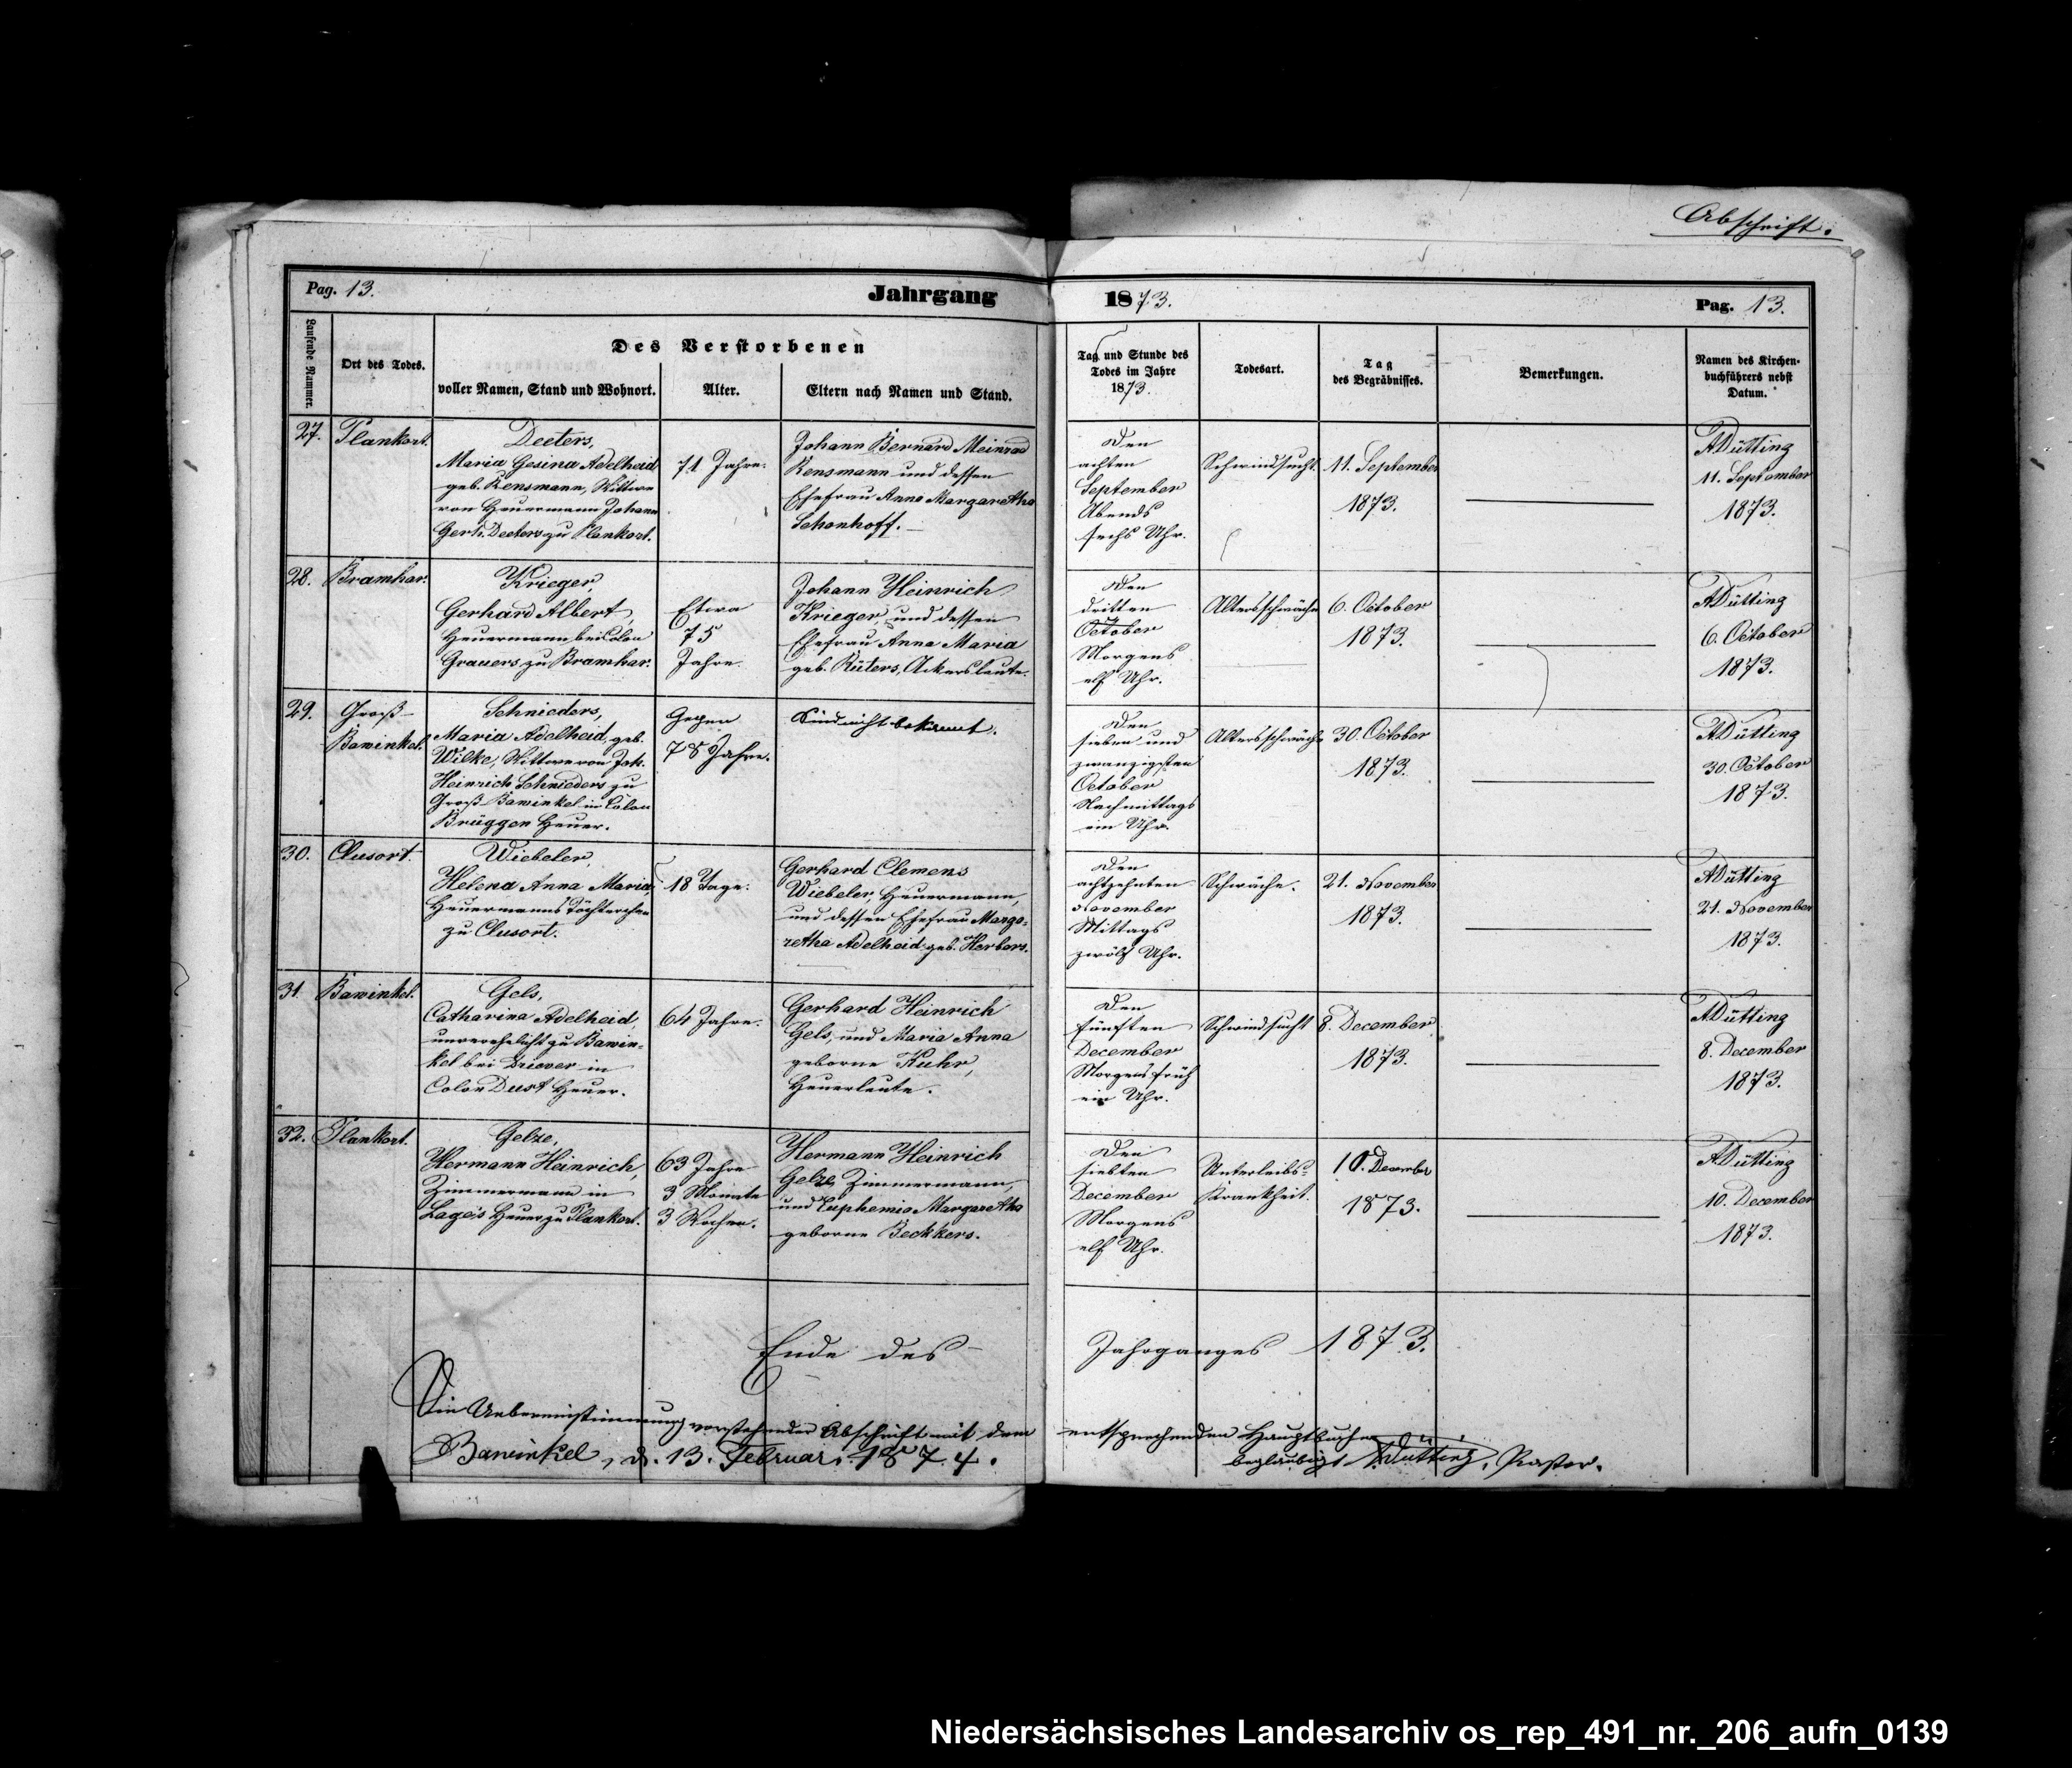 Abschrift.
Pag. 13.
Jahrgang
1873.
Pag. 13.
Laufende Nummer.
Ort des Todes.
Des Verstorbenen
voller Namen, Stand und Wohnort.
Alter.
Eltern nach Namen und Stand.
Tag und Stunde des
Todes im Jahre
1873.
Todesart.
Tag
des Begräbnisses.
Bemerkungen.
Namen des Kirchen-
buchführers nebst
Datum.
27.
Plankort.
Deeters,
Maria Gesina Adelheid
geb. Rensmann, Wittwe
von Heuermann Johann
Gerh. Deeters zu Plankort.
71 Jahre.
Johann Bernard Meinrad
Rensmann und dessen
Ehefrau Anna Margaretha
Schonhoff.
Den
achten
September
Abends
sechs Uhr.
Schwindsucht.
11. September
1873.
ADütting
11. September
1873.
28.
Bramhar.
Krieger,
Gerhard Albert,
Heuermann bei Colon
Grauers zu Bramhar.
Etwa
75
Jahre.
Johann Heinrich
Krieger, und dessen
Ehefrau Anna Maria
geb. Rüters, Ackersleute.
Den
dritten
October
Morgens
elf Uhr.
Altersschwäche
6. October
1873.
ADütting
6. October
1873.
29.
Groß-
Bawinkel.
Schnieders,
Maria Adelheid, geb.
Wilke, Wittwe von Joh.
Heinrich Schnieders zu
Groß-Bawinkel in Colon
Brüggen Heuer.
Gegen
78 Jahre.
Sind nicht bekannt.
Den
sieben und
zwanzigsten
October
Nachmittags
ein Uhr.
Altersschwäche
30. October
1873.
ADütting
30. October
1873.
30.
Clusort.
Wiebeler,
Helena Anna Maria,
Heuermanns Töchterchen
zu Clusort.
18 Tage.
Gerhard Clemens
Wiebeler, Heuermann,
und dessen Ehefrau Marga-
retha Adelheid geb. Herbers.
Den
achtzehnten
November
Mittags
zwölf Uhr.
Schwäche.
21. November
1873.
ADütting
21. November
1873.
31
Bawinkel.
Gels,
Catharina Adelheid,
unverehelicht zu Bawin-
kel bei Driever in
Colon Dust Heuer.
64 Jahre.
Gerhard Heinrich
Gels, und Maria Anna
geborne Kuhr,
Heuerleute.
Den
fünften
December
Morgens früh
ein Uhr.
Schwindsucht
8. December
1873.
ADütting
8. December
1873.
32.
Plankort.
Gelze,
Hermann Heinrich,
Zimmermann in
Lage's Heuer zu Plankort.
63 Jahre
3 Monate
3 Wochen.
Hermann Heinrich
Gelze, Zimmermann,
und Euphemia Margaretha
geborne Beckkers.
Den
siebten
December
Morgens
elf Uhr.
Unterleibs-
Krankheit.
10. December
1873.
ADütting
10. December
1873.
Ende des Jahrganges 1873.
Die Uebereinstimmung vorstehender Abschrift mit dem entsprechenden Hauptbuche
Bawinkel, d. 13. Februar 1874. beglaubigt ADütting, Pastor.
Niedersächsisches Landesarchiv os_rep_491_nr._206_aufn_0139